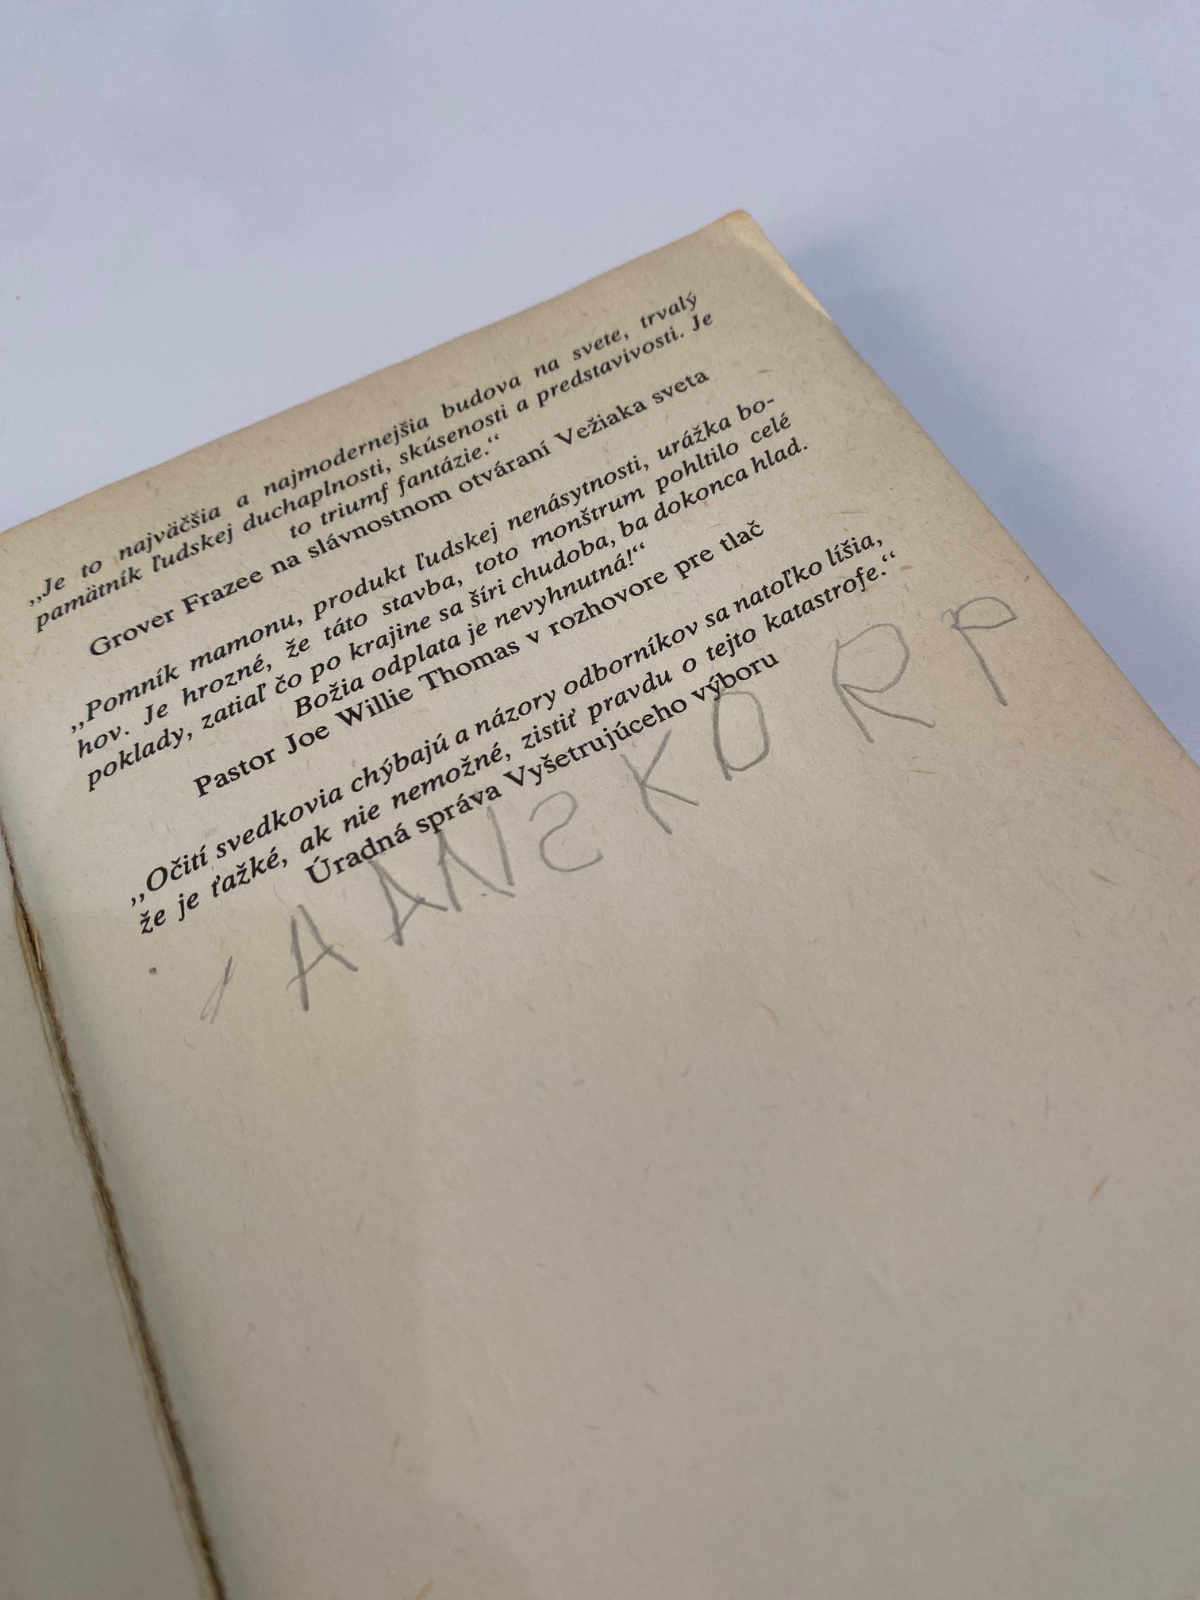 „Je to najväčšia a najmodernejšia budova na svete, trvalý
pamätník ľudskej duchaplnosti, skúsenosti a predstavivosti. Je
to triumf fantázie.“
Grover Frazee na slávnostnom otváraní Vežiaka sveta
„Pomník mamonu, produkt ľudskej nenásytnosti, urážka bo-
hov. Je hrozné, že táto stavba, toto monštrum pohltilo celé
poklady, zatiaľ čo po krajine sa šíri chudoba, ba dokonca hlad.
Božia odplata je nevyhnutná!“
Pastor Joe Willie Thomas v rozhovore pre tlač
„Očití svedkovia chýbajú a názory odborníkov sa natoľko líšia,
že je ťažké, ak nie nemožné, zistiť pravdu o tejto katastrofe.“
Úradná správa Vyšetrujúceho výboru